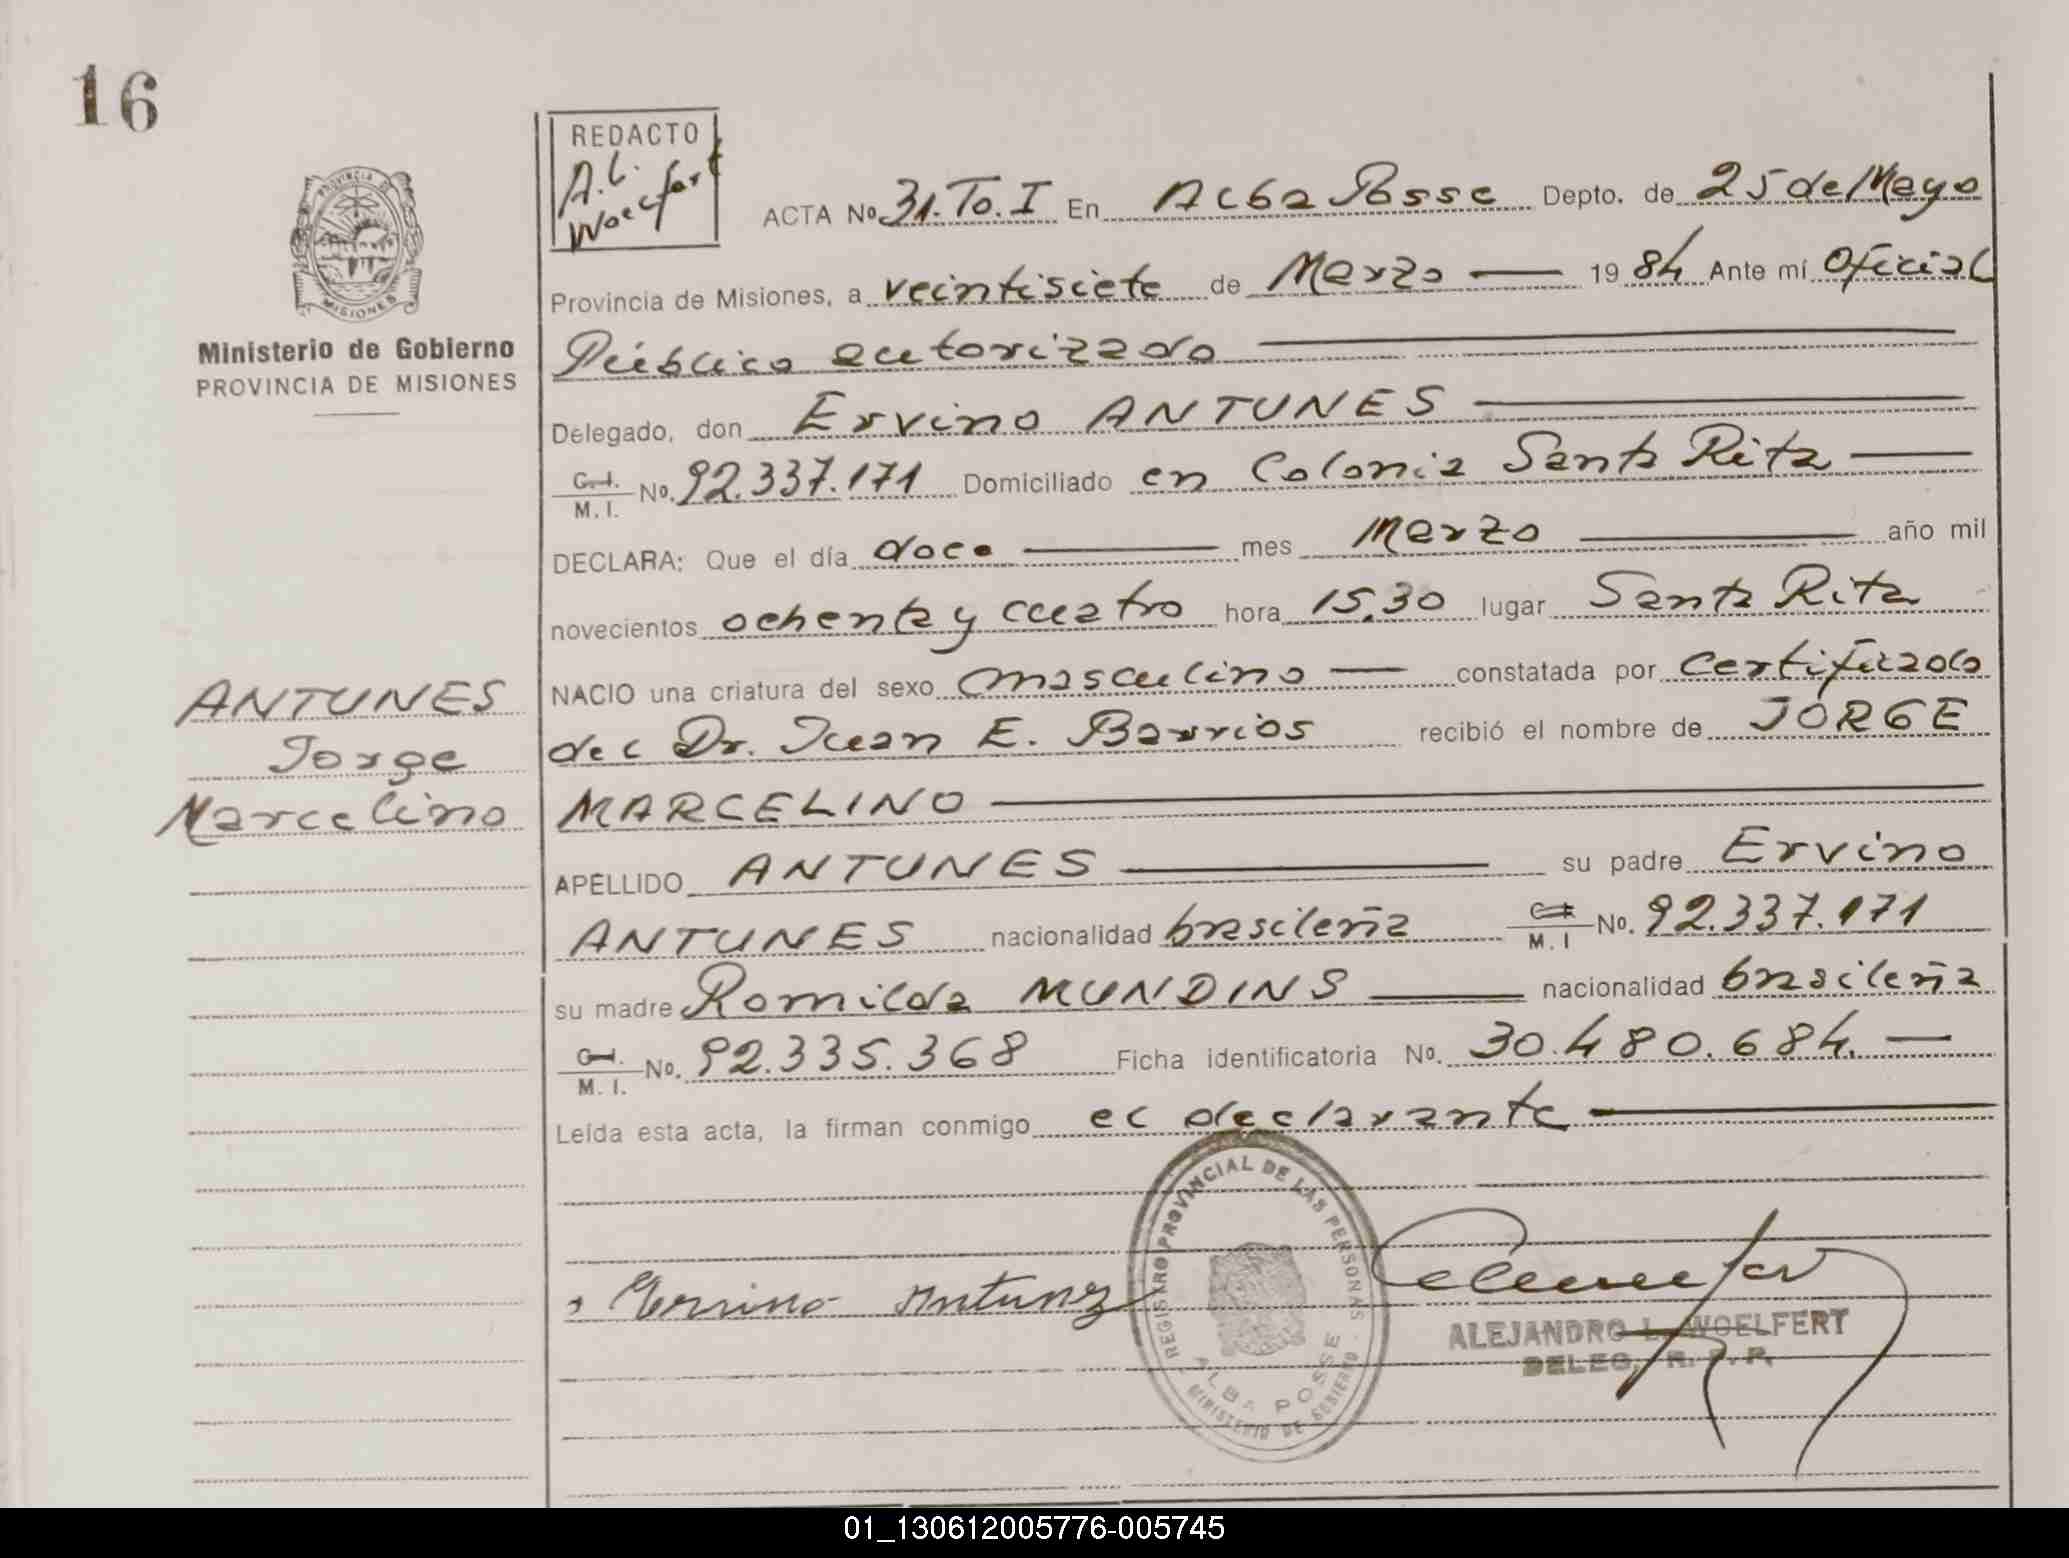 16
REDACTO
A.L.
Woelfert
PROVINCIA DE
MISIONES
Ministerio de Gobierno
PROVINCIA DE MISIONES
ACTA No. 31. To. I En Alba Posse Depto. de 25 de Mayo
Provincia de Misiones, a veintisiete de Marzo 19 84 Ante mí Oficial
Público autorizado
Delegado, don Ervino ANTUNES
C.I. M.I. No. 92.337.171 Domiciliado en Colonia Santa Rita
DECLARA: Que el día doce mes Marzo año mil
novecientos ochenta y cuatro hora 15.30 lugar Santa Rita
NACIO una criatura del sexo masculino constatada por certificado
del Dr. Juan E. Barrios recibió el nombre de JORGE
MARCELINO
APELLIDO ANTUNES su padre Ervino
ANTUNES nacionalidad brasileña C.I. M.I No. 92.337.171
su madre Romilda MUNDINS nacionalidad brasileña
C.I. M.I. No. 92.335.368 Ficha identificatoria No. 30.480.684.
Leída esta acta, la firman conmigo el declarante
ANTUNES
Jorge
Marcelino
Ervino Antunez
REGISTRO PROVINCIAL DE LAS PERSONAS
ALBA POSSE
MINISTERIO DE GOBIERNO
ALEJANDRO L. WOELFERT
DELEG. R. P. P.
01_130612005776-005745